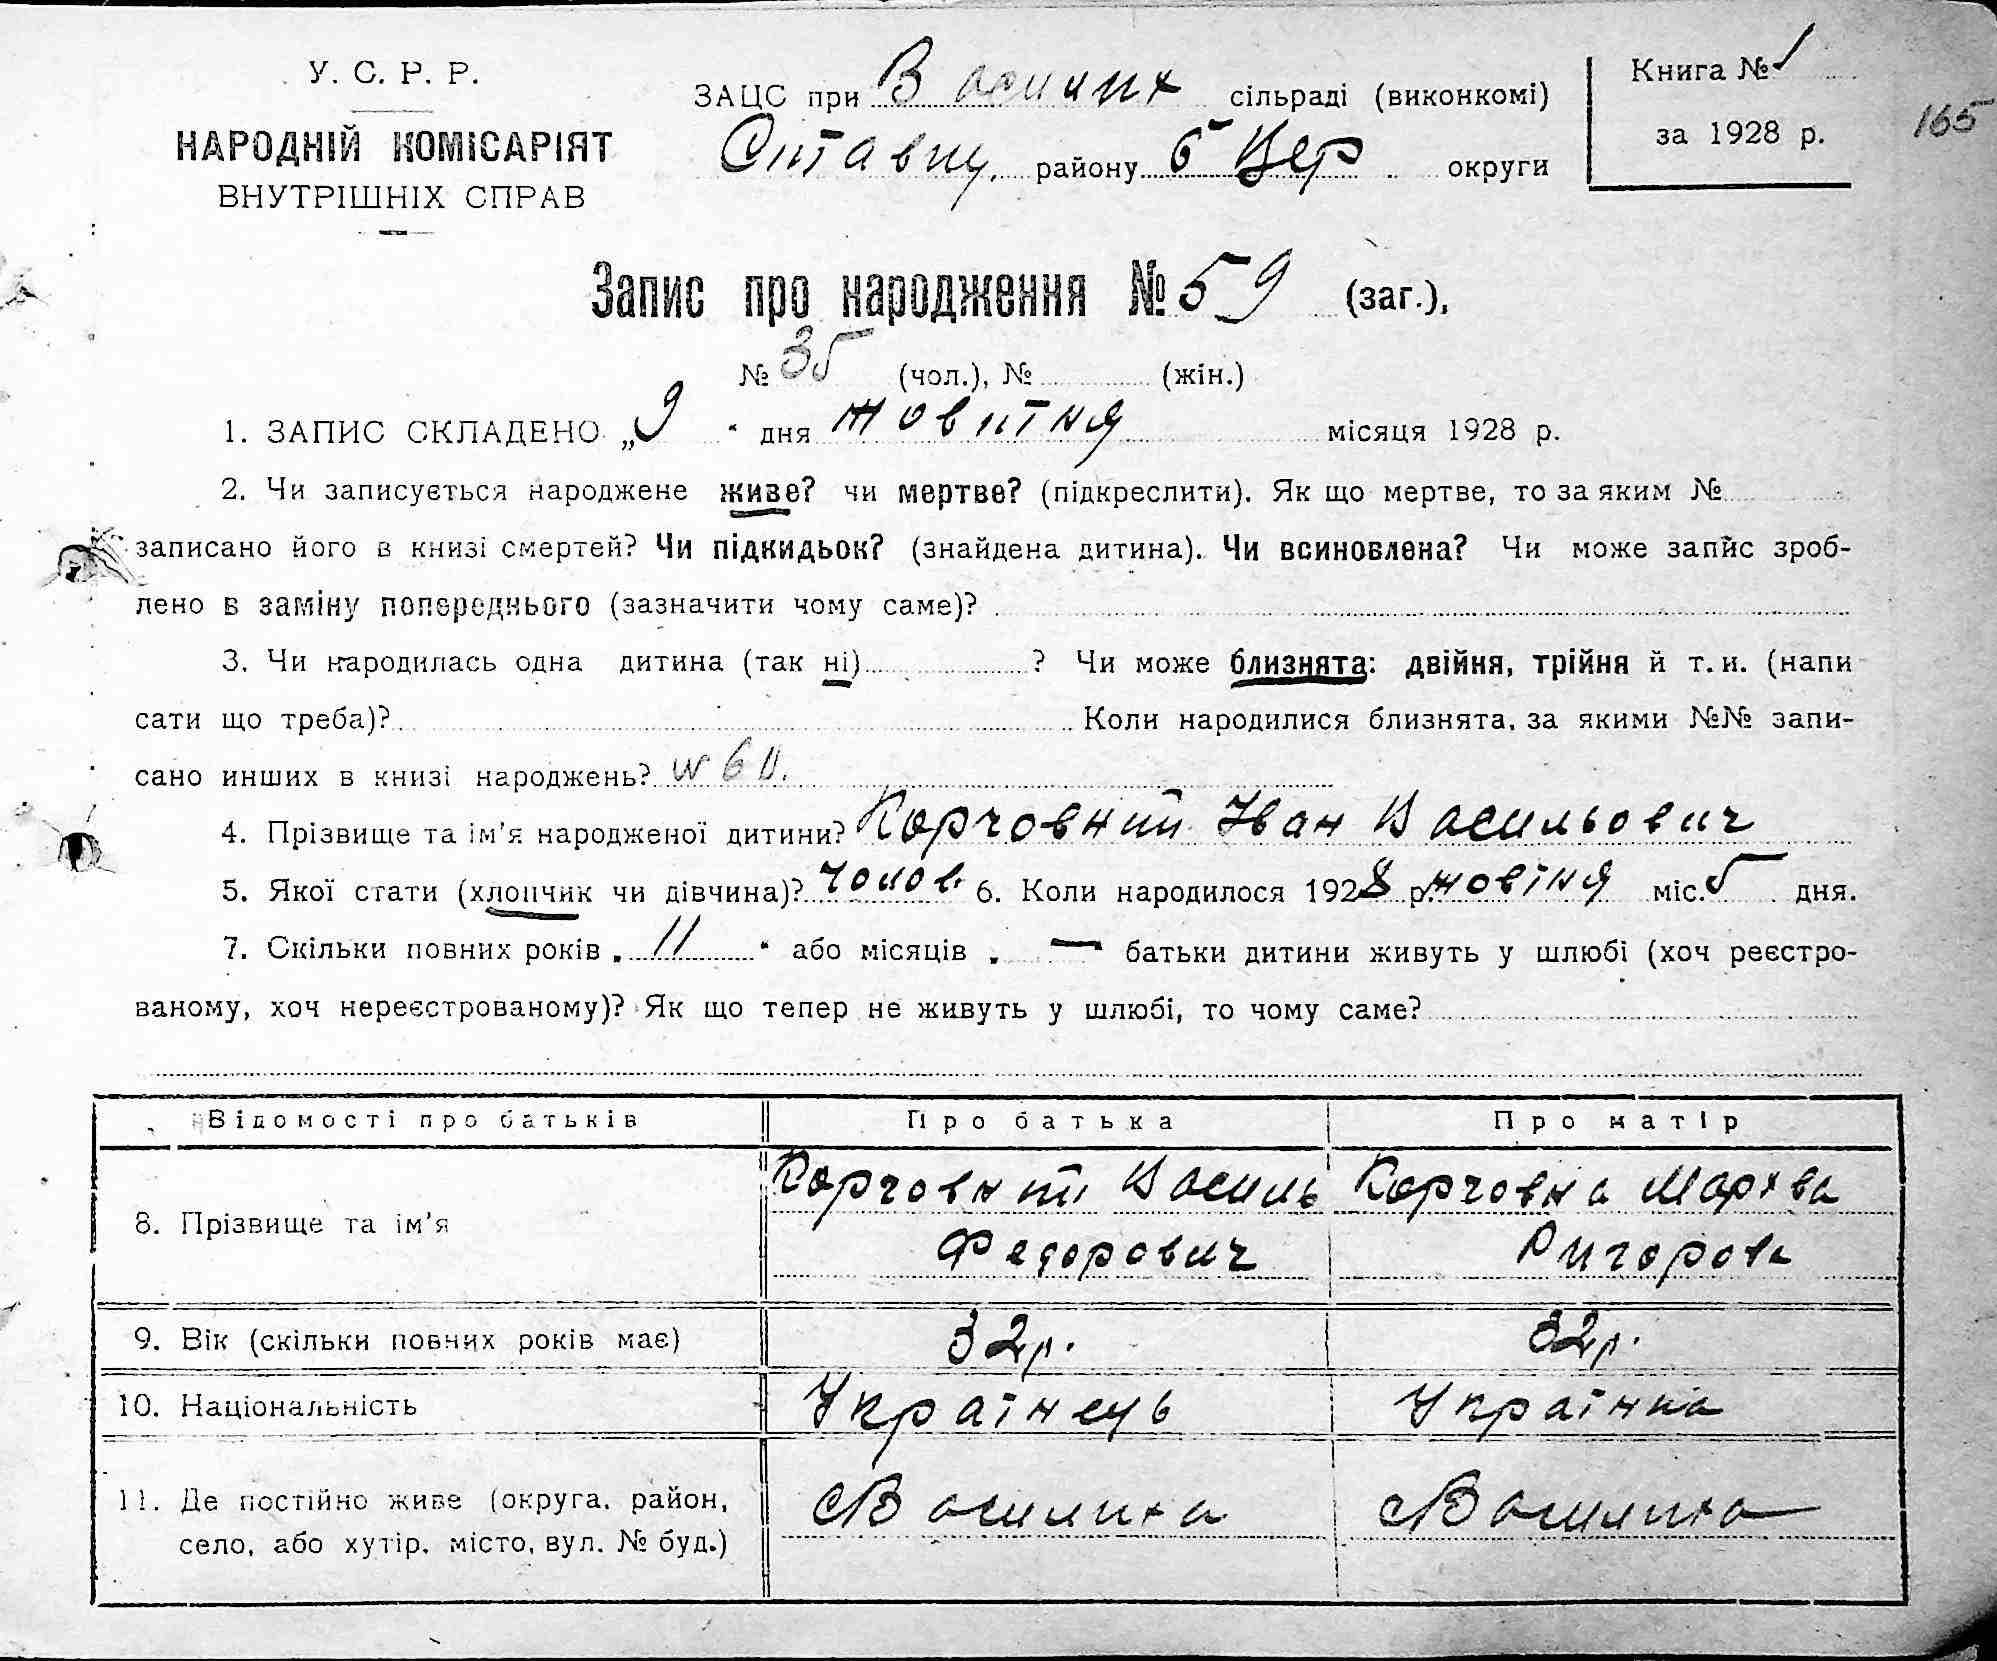 У. С. Р. Р.
НАРОДНІЙ КОМІСАРІЯТ
ВНУТРІШНІХ СПРАВ
ЗАЦС при Василих сільраді (виконкомі)
Ставищ. району Б Цер округи
Книга № 1
за 1928 р.
165
Запис про народження № 59 (заг.),
№ 35 (чол.), № (жін.)
1. ЗАПИС СКЛАДЕНО „9 “ дня жовтня місяця 1928 р.
2. Чи записується народжене живе? чи мертве? (підкреслити). Як що мертве, то за яким №
записано його в книзі смертей? Чи підкидьок? (знайдена дитина). Чи всиновлена? Чи може запис зроб-
лено в заміну попереднього (зазначити чому саме)?
3. Чи народилась одна дитина (так ні) ? Чи може близнята: двійня, трійня й т. и. (напи
сати що треба)? Коли народилися близнята, за якими №№ запи-
сано инших в книзі народжень? № 60.
4. Прізвище та ім'я народженої дитини? Корчовний Іван Васильович
5. Якої стати (хлопчик чи дівчина)? Чолов. 6. Коли народилося 1928 р. жовтня міс. 5 дня.
7. Скільки повних років „ 11 “ або місяців „ — батьки дитини живуть у шлюбі (хоч реєстро-
ваному, хоч нереєстрованому)? Як що тепер не живуть у шлюбі, то чому саме?
Відомості про батьків Про батька Про матір
8. Прізвище та ім'я Корчовний Василь Федорович Корчовна Мархва Ригорова
9. Вік (скільки повних років має) 32 р. 32 р.
10. Національність Українець Українка
11. Де постійно живе (округа, район, село, або хутір, місто, вул. № буд.) с Василиха с Василиха